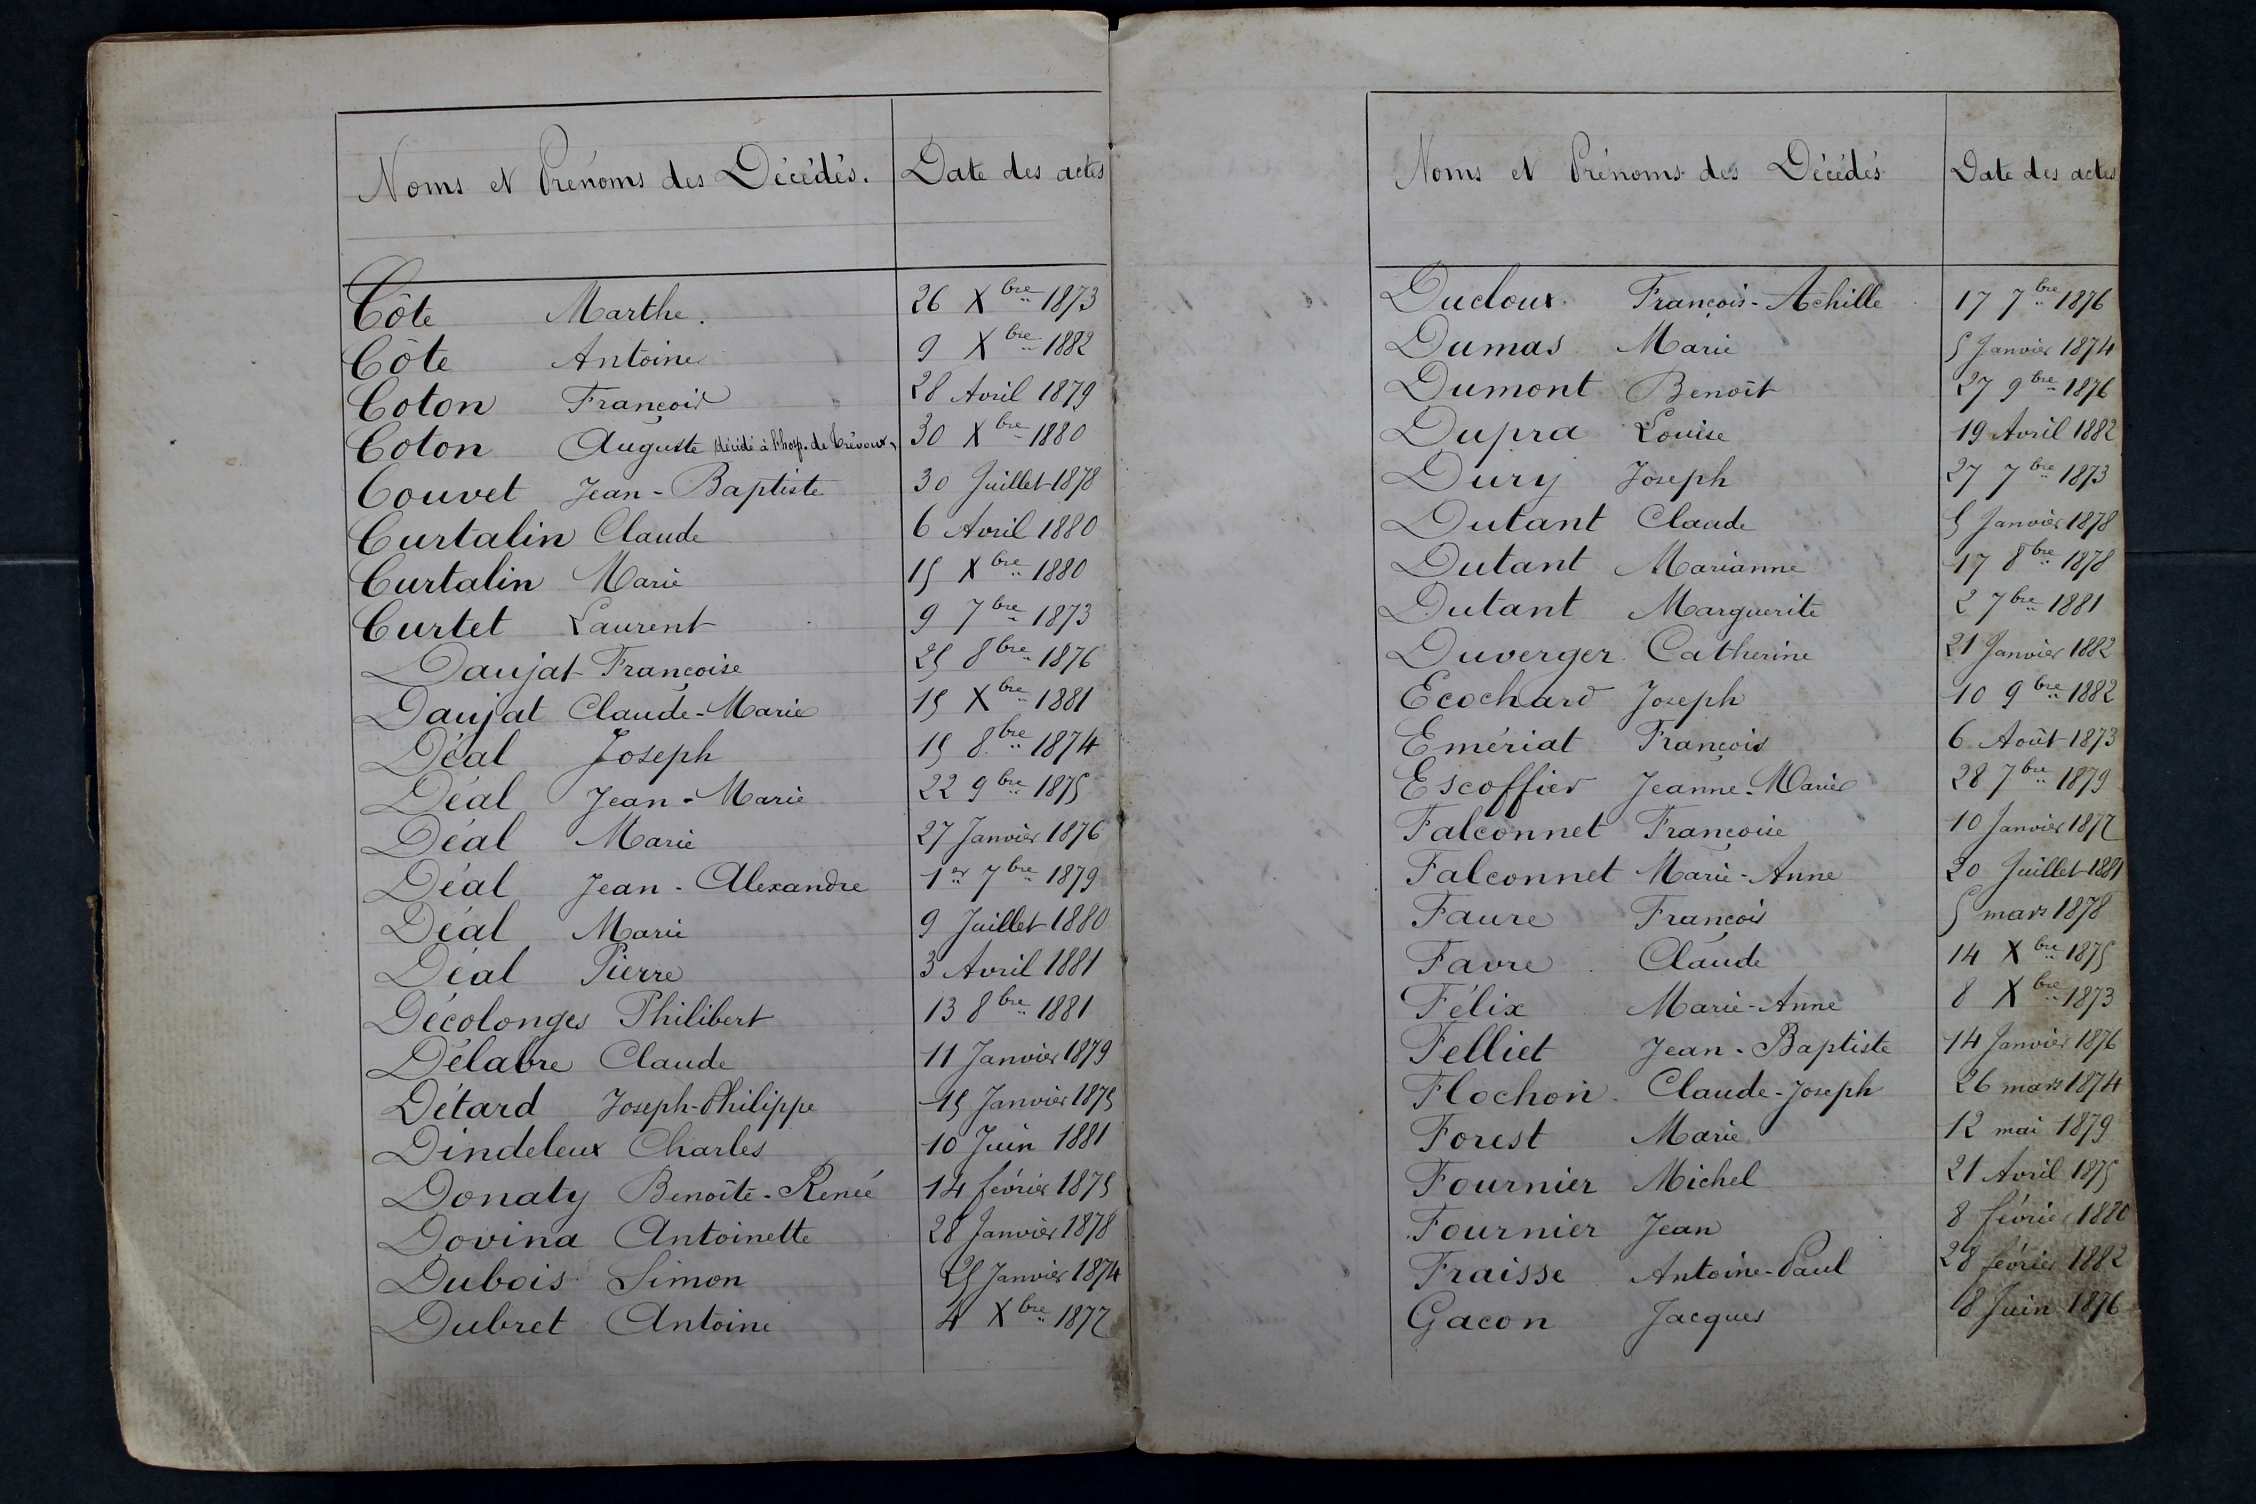 Noms et Prénoms des Décédés. Date des actes
Côte Marthe. 26 Xbre 1873
Côte Antoine 9 Xbre 1882
Coton François 28 Avril 1879
Coton Auguste décédé à l'hosp. de Trévoux 30 Xbre 1880
Couvet Jean-Baptiste 30 Juillet 1878
Curtalin Claude 6 Avril 1880
Curtalin Marie 15 Xbre 1880
Curtet Laurent 9 7bre 1873
Daujat Françoise 25 8bre 1876
Daujat Claude-Marie 15 Xbre 1881
Déal Joseph 15 8bre 1874
Déal Jean-Marie 22 9bre 1875
Déal Marie 27 Janvier 1876
Déal Jean-Alexandre 1er 7bre 1879
Déal Marie 9 Juillet 1880
Déal Pierre 3 Avril 1881
Décolonges Philibert 13 8bre 1881
Délabre Claude 11 Janvier 1879
Détard Joseph-Philippe 15 Janvier 1875
Dindeleux Charles 10 Juin 1881
Donaty Benoîte-Renée 14 février 1875
Dovina Antoinette 28 Janvier 1878
Dubois Simon 25 Janvier 1874
Dubret Antoine 4 Xbre 1877
Noms et Prénoms des Décédés Date des actes
Ducloux François-Achille 17 7bre 1876
Dumas Marie 5 Janvier 1874
Dumont Benoît 27 9bre 1876
Dupra Louise 19 Avril 1882
Dury Joseph 27 7bre 1873
Dutant Claude 5 Janvier 1878
Dutant Marianne 17 8bre 1878
Dutant Marguerite 2 7bre 1881
Duverger Catherine 21 Janvier 1882
Ecochard Joseph 10 9bre 1882
Emériat François 6 Août 1873
Escoffier Jeanne-Marie 28 7bre 1879
Falconnet Françoise 10 Janvier 1877
Falconnet Marie-Anne 30 Juillet 1881
Faure François 5 mars 1878
Favre Claude 14 Xbre 1875
Félix Marie-Anne 8 Xbre 1873
Felliet Jean-Baptiste 14 Janvier 1876
Flochon Claude-Joseph 26 mars 1874
Forest Marie 12 mai 1879
Fournier Michel 21 Avril 1875
Fournier Jean 8 février 1880
Fraisse Antoine-Paul 28 février 1882
Gacon Jacques 8 Juin 1876